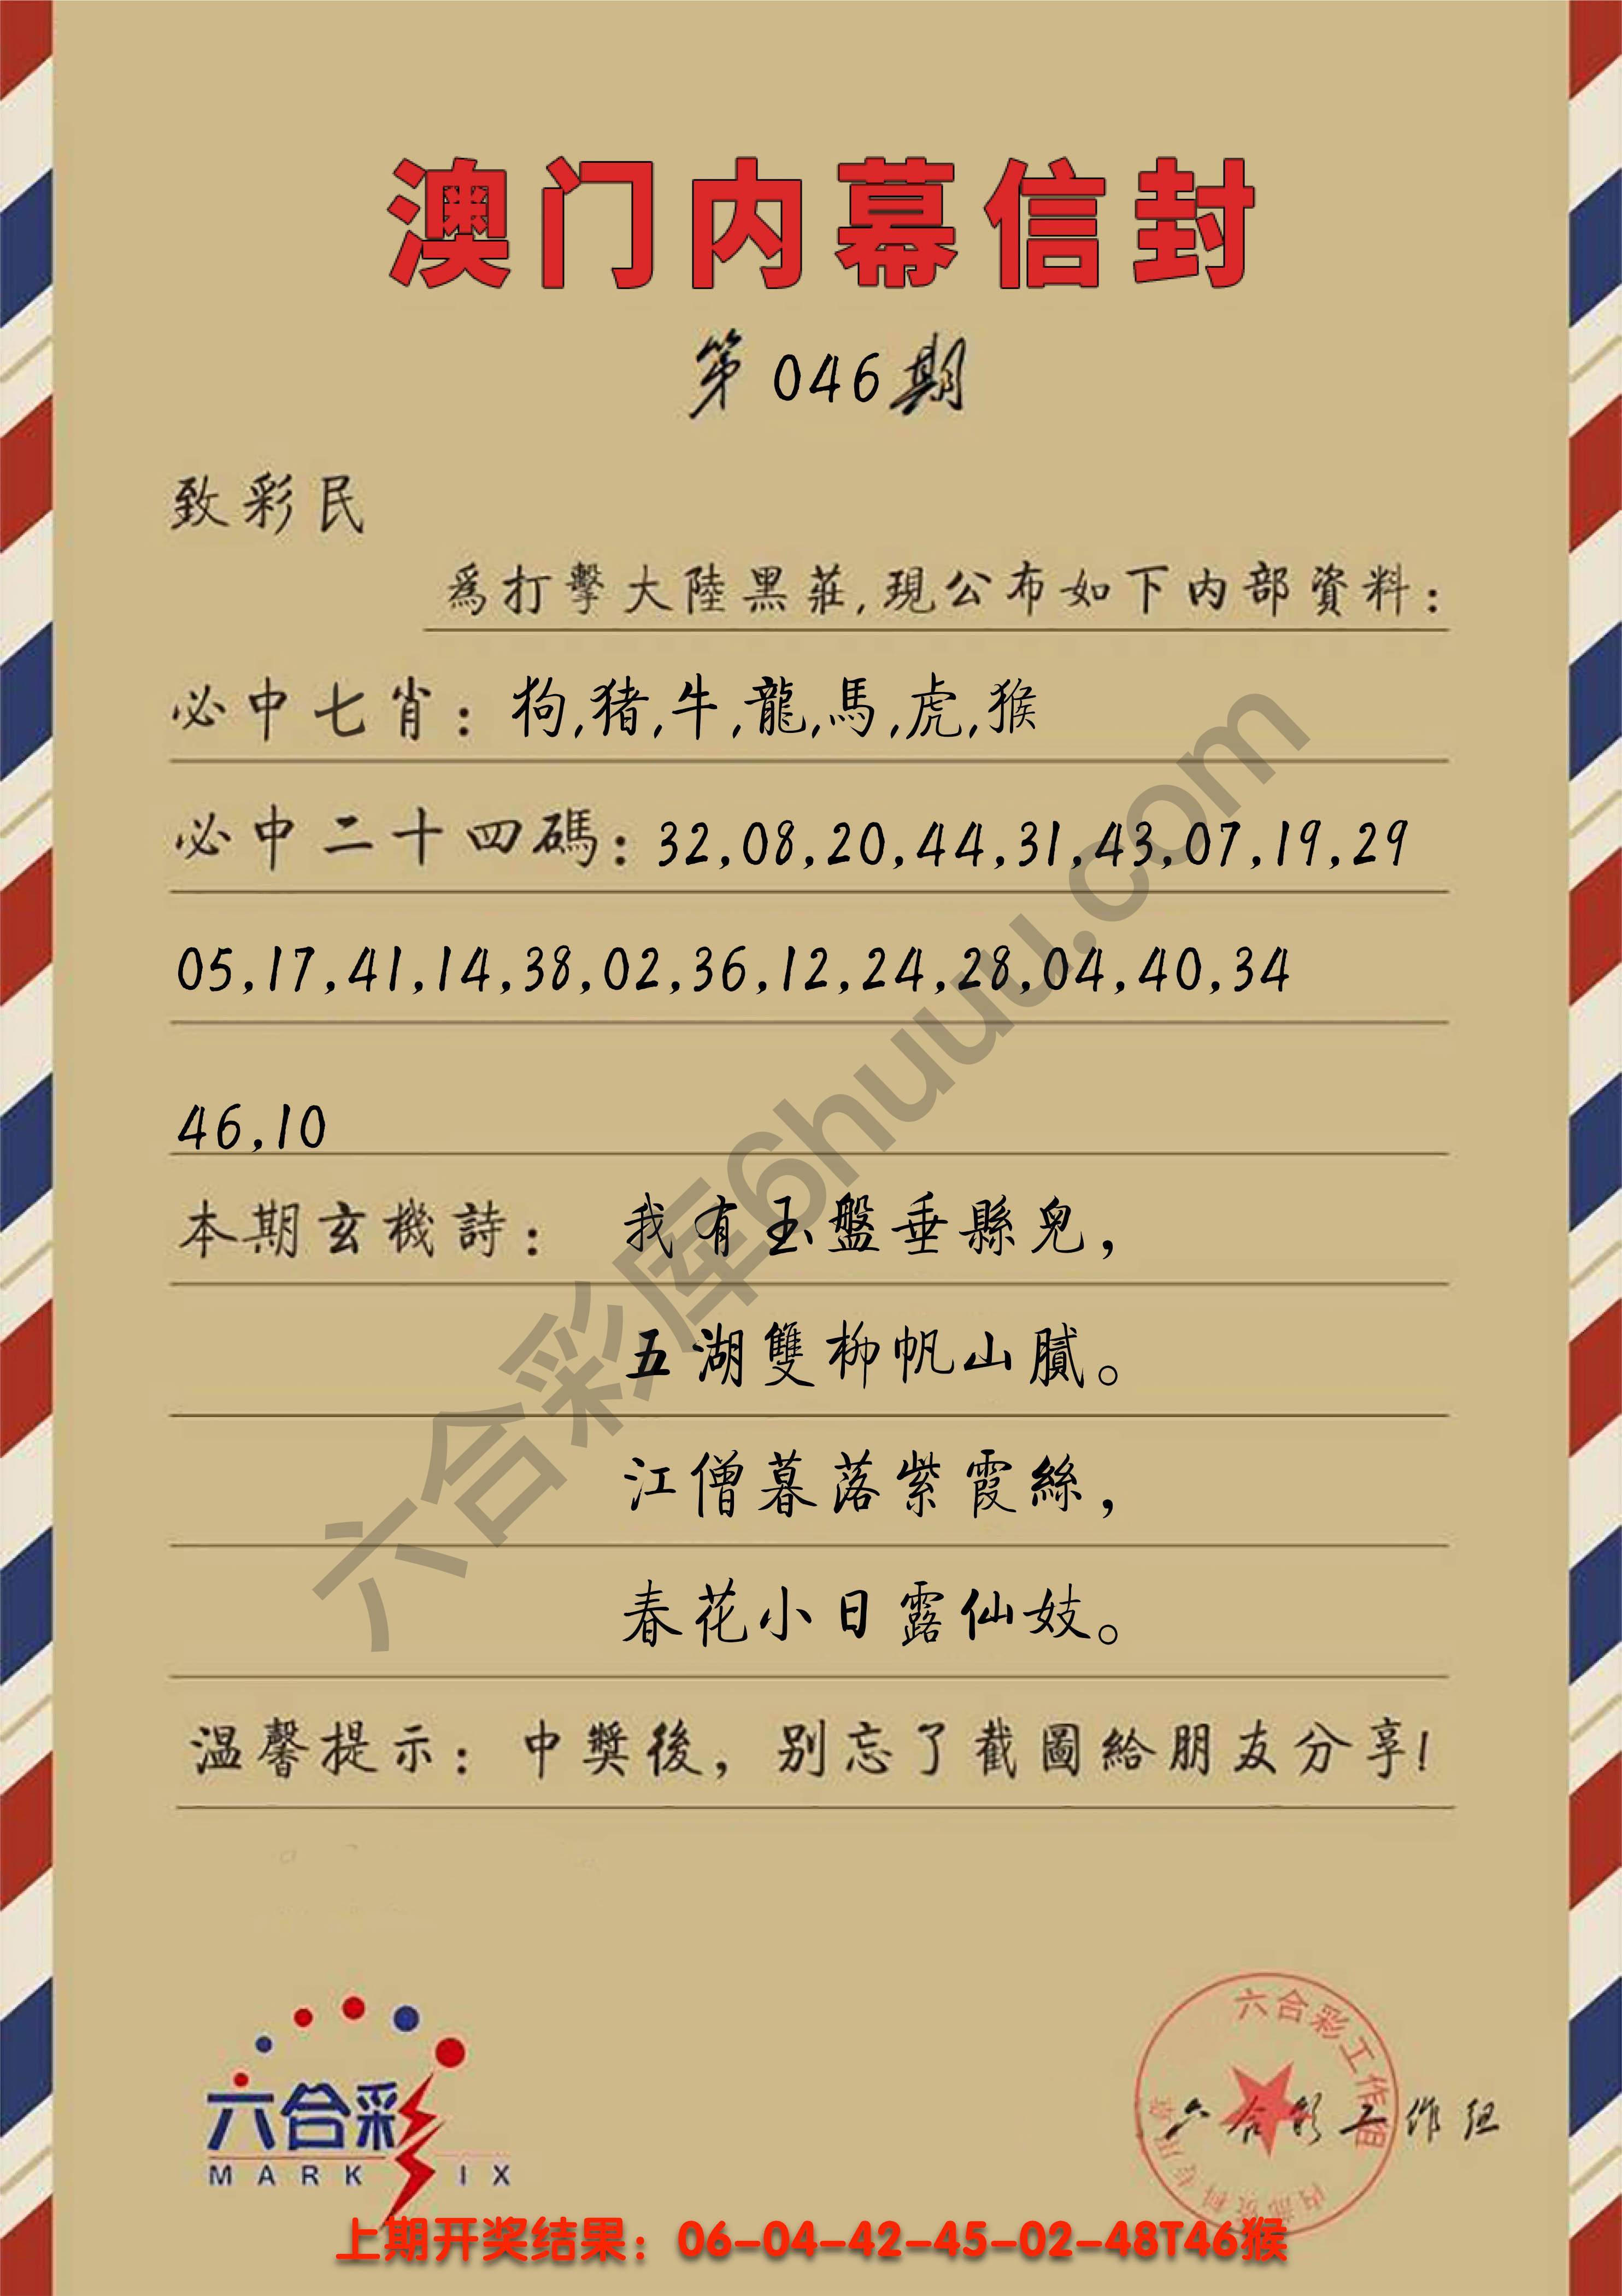 澳门内幕信封
第046期
致彩民
爲打擊大陸黑莊,現公布如下内部資料:
必中七肖:狗,猪,牛,龍,馬,虎,猴
必中二十四碼:32,08,20,44,31,43,07,19,29
05,17,41,14,38,02,36,12,24,28,04,40,34
46,10
本期玄機詩: 我有玉盤垂縣兒,
五湖雙柳帆山膩。
江僧暮落紫霞絲,
春花小日露仙妓。
温馨提示:中獎後,别忘了截圖給朋友分享!
六合彩库6huuu.com
六合彩
MARK SIX
六合彩工作组
六合彩工作组
上期开奖结果:06-04-42-45-02-48T46猴